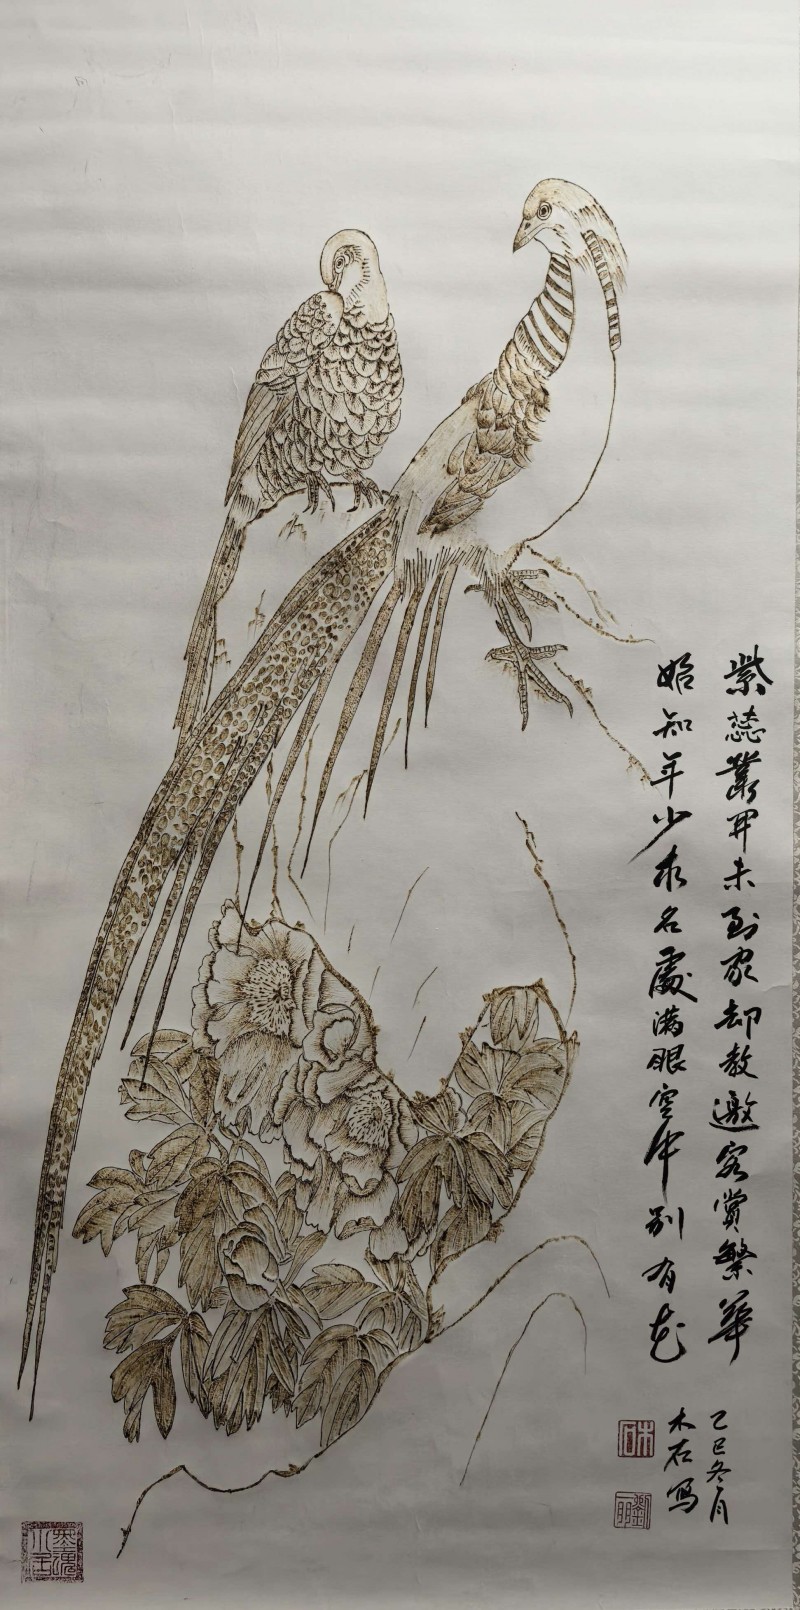 紫蕊叢開未到家却教邀客賞繁華
始知年少求名處滿眼空中别有花
乙巳冬月
木石写
木石